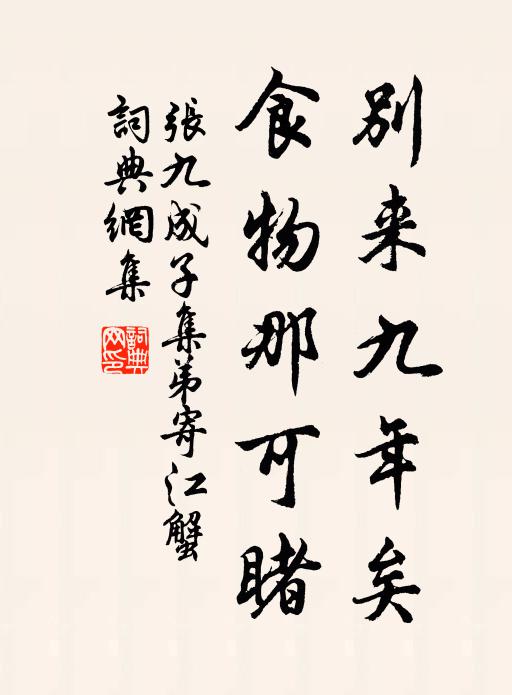 別来九年矣
食物那可睹
張九成子集弟寄江蟹
詞典網集
詞典網印